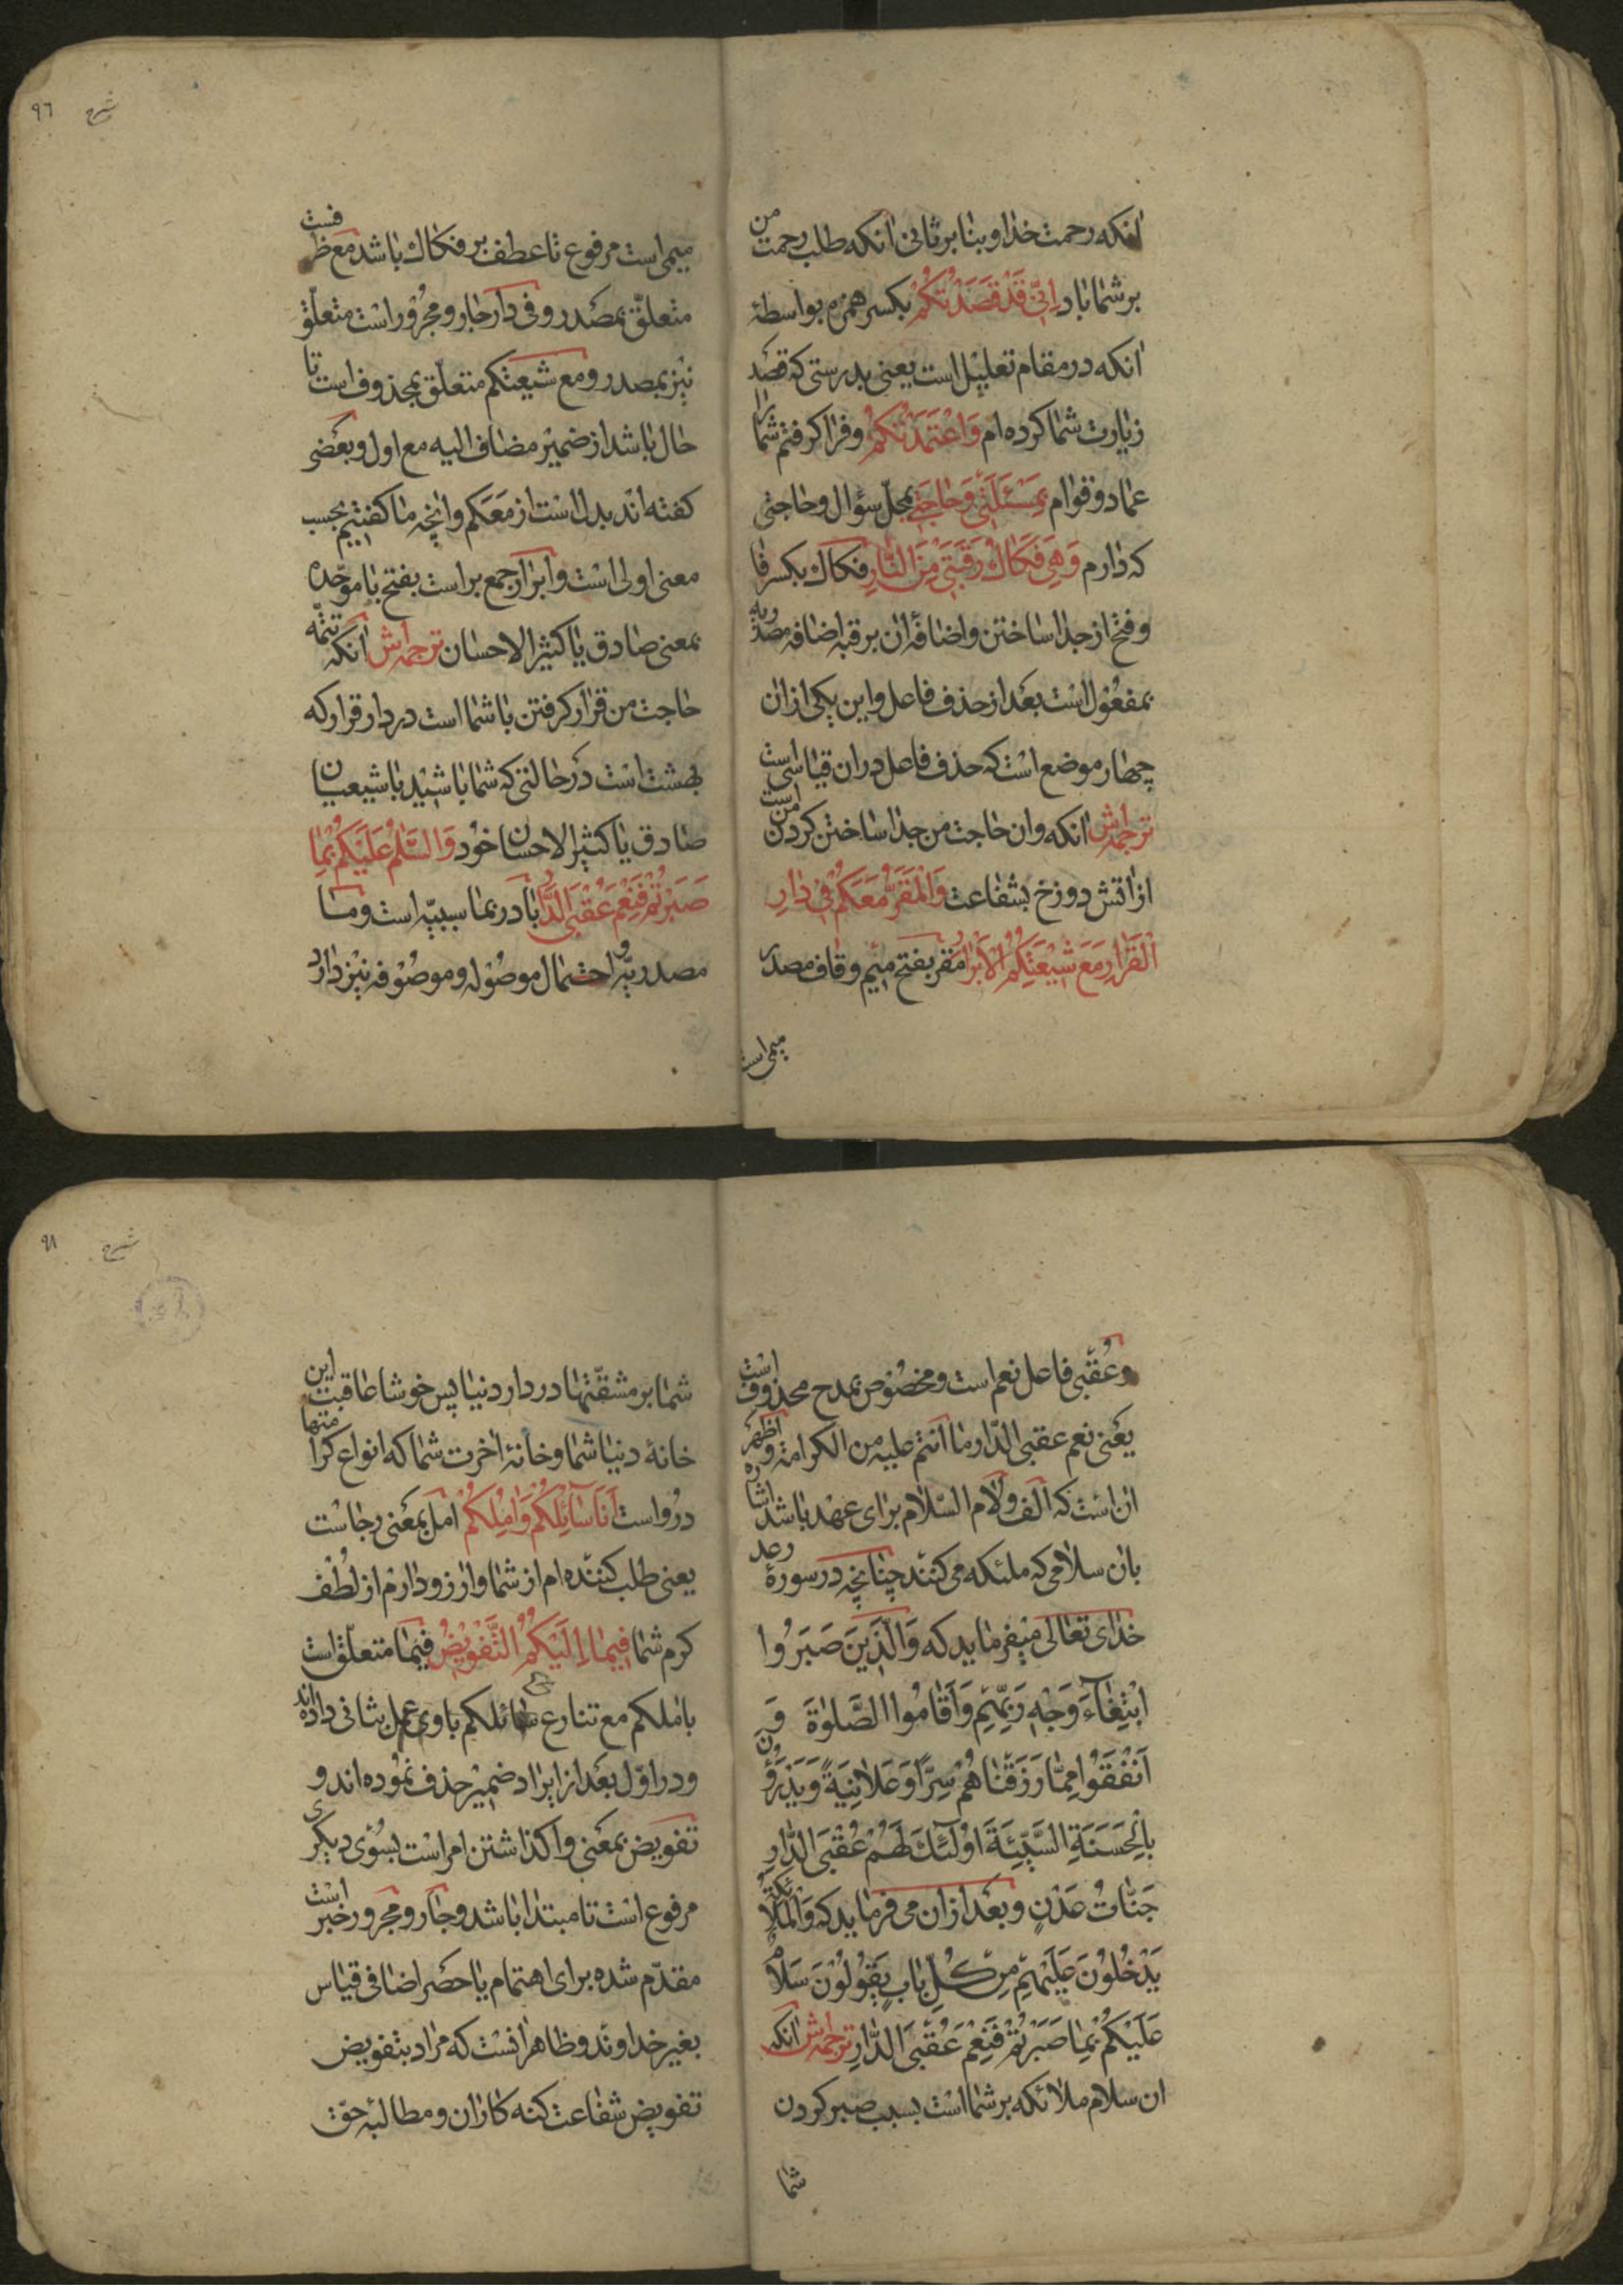 انکه رحمت خدا و بنا بر ثانی انکه طلب رحمت من
بر شما باد اِنّی قَدْ قَصَدْتُکُمْ بکسر همزه بواسطهٔ
انکه در مقام تعلیل است یعنی بدرستی که قصد
زیارت شما کرده ام وَاعْتَمَدْتُکُمْ و فرا کرفتم شما را
عماد و قوام بِمَسْئَلَتی وَحاجَتی بمحلّ سؤال و حاجتی
که دارم وَهِیَ فَکاكُ رَقَبَتی مِنَ النّارِ فکاك بکسر فا
و فتح از جدا ساختن و اضافهٔ ان برقبه اضافه مصدریه
بمفعول است بعد از حذف فاعل و این یکی از ان
چهار موضع است که حذف فاعل در ان قیاسی است
ترجمه‌اش انکه و ان حاجت من جدا ساختن کردن من است
از اتش دوزخ بشفاعت وَالْمَقَرُّ مَعَکُمْ فی دارِ
الْقَرارِ مَعَ شیعَتِکُمُ الْاَبْرارِ مقر بفتح میم و قاف مصدر
میمی است
٩٦
شرح
میمی است مرفوع تا عطف بر فکاك باشد مع ظرفست
متعلّق بمصدر و فی دار جار و مجرور است متعلّق
نیز بمصدر و مع شیعتکم متعلّق بمحذوف است تا
حال باشد از ضمیر مضاف الیه مع اول و بعضی
کفته اند بدل است از معکم و انچه ما کفتیم بحسب
معنی اولی است و ابرار جمع بر است بفتح با موحّده
بمعنی صادق یا کثیر الاحسان ترجمه‌اش انکه تتمّه
حاجت من قرار کرفتن با شما است در دار قرار که
بهشت است در حالتی که شما باشید با شیعیان
صادق یا کثیر الاحسان خود وَالسَّلٰمُ عَلَیْکُمْ بِما
صَبَرْتُمْ فَنِعْمَ عُقْبَی الدّارِ با در بما سببیّه است و ما
مصدریّه و احتمال موصوله و موصوفه نیز دارد
و عُقبی فاعل نعم است و مخصوص بمدح محذوف است
یعنی نعم عقبی الدّار ما انتم علیه من الکرامة و اظهر
ان است که الف و لام السّلام برای عهد باشد اشاره
بان سلامی که ملئکه می کنند چنانچه در سورهٔ رعد
خدای تعالی میفرماید که وَالَّذینَ صَبَرُوا
ابْتِغاءَ وَجْهِ رَبِّهِمْ وَاَقامُوا الصَّلوٰةَ وَ
اَنْفَقُوا مِمّا رَزَقْناهُمْ سِرّاً وَعَلانِیَةً وَیَدْرَؤُنَ
بِالْحَسَنَةِ السَّیِّئَةَ اُولٰئِكَ لَهُمْ عُقْبَی الدّارِ
جَنّاتُ عَدْنٍ و بعد از ان می فرماید که وَالْمَلائِکَةُ
یَدْخُلُونَ عَلَیْهِمْ مِنْ کُلِّ بابٍ یَقُولُونَ سَلامٌ
عَلَیْکُمْ بِما صَبَرْتُمْ فَنِعْمَ عُقْبَی الدّارِ ترجمه‌اش انکه
ان سلام ملائکه بر شما است بسبب صبر کردن
شما
٩٨
شرح
شما بر مشقّتها در دار دنیا پس خوشا عاقبت این
خانهٔ دنیا شما و خانهٔ اخرت شما که انواع کرامتها
درو است اَنَا سائِلُکُمْ وَامِلُکُمْ امل بمعنی رجاست
یعنی طلب کننده ام از شما و ارزو دارم از لطف
کرم شما فیما اِلَیْکُمُ التَّفْویضُ فیما متعلّق است
باملکم مع تنازع سائلکم باوی عمل بثانی داده اند
و در اوّل بعد از ایراد ضمیر حذف نموده اند و
تفویض بمعنی واکذاشتن امر است بسوی دیکری
مرفوع است تا مبتدا باشد و جار و مجرور خبر است
مقدّم شده برای اهتمام یا حصر اضافی قیاس
بغیر خداوند و ظاهر انست که مراد بتفویض
تفویض شفاعت کنه کاران و مطالبه حقّ